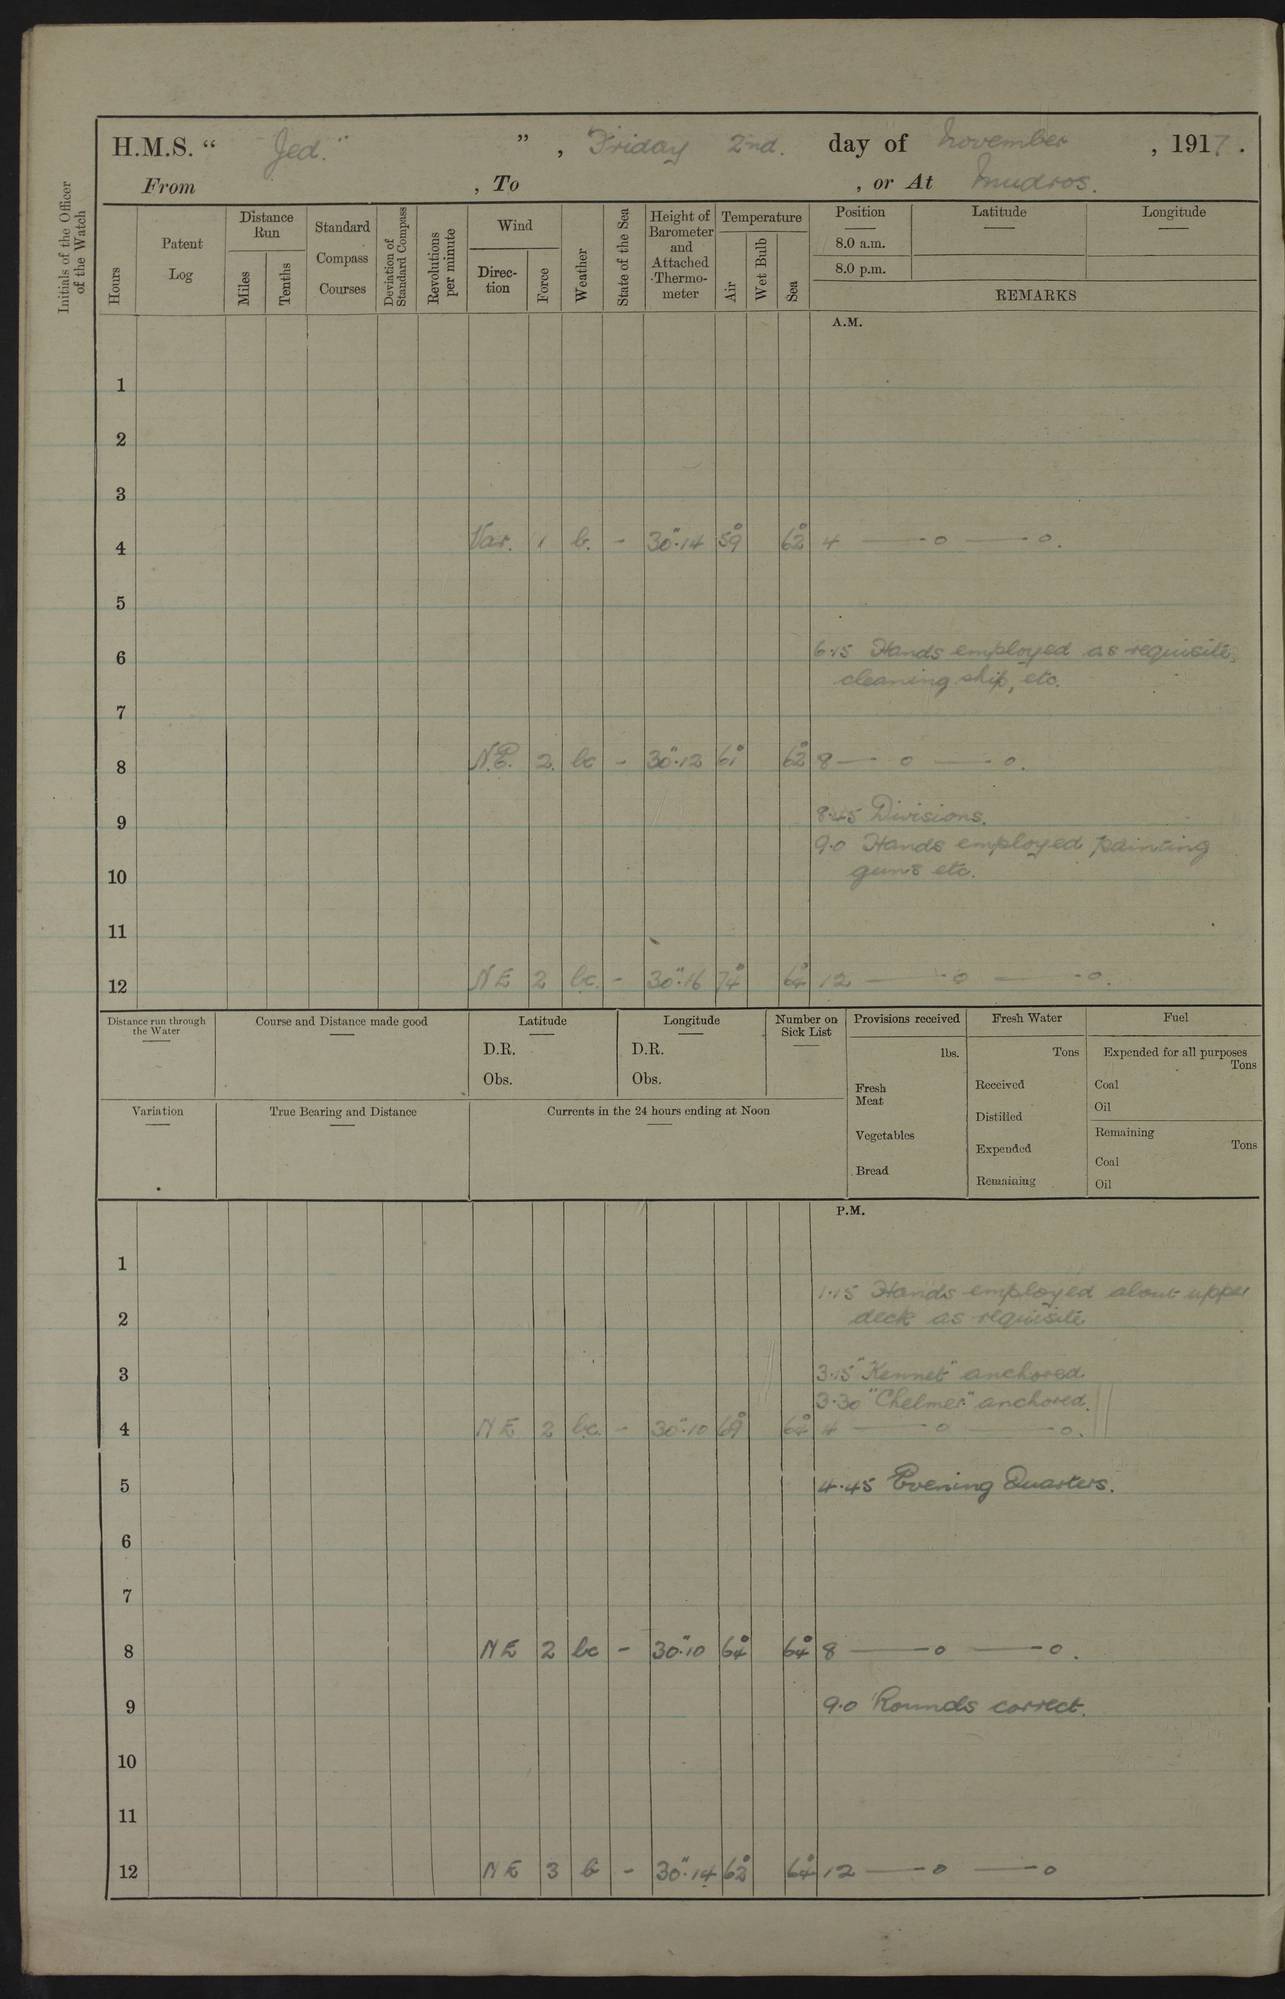 H.M.S. “ Jed. ” , Friday 2nd. day of November , 1917 .
From , To , or At Mudros.
Initials of the Officer of the Watch
Hours
Patent Log
Distance Run
Miles
Tenths
Standard Compass Courses
Deviation of Standard Compass
Revolutions per minute
Wind
Direc- tion
Force
Weather
State of the Sea
Height of Barometer and Attached Thermo- meter
Temperature
Air
Wet Bulb
Sea
Position Latitude Longitude
8.0 a.m.
8.0 p.m.
REMARKS
A.M.
1
2
3
4 Var. 1 b. - 30".14 59° 62° 4 —— o —— o.
5
6 6.15 Hands employed as requisite,
cleaning ship, etc.
7
8 N.E. 2. bc - 30".12 61° 62° 8 —— o —— o.
8.45 Divisions.
9
9.0 Hands employed painting
10 guns etc.
11
12 NE 2 bc. - 30".16 74° 64° 12 —— o —— o.
Distance run through the Water
Course and Distance made good
Latitude
D.R.
Obs.
Longitude
D.R.
Obs.
Number on Sick List
Provisions received
lbs.
Fresh Meat
Vegetables
Bread
Fresh Water
Tons
Received
Distilled
Expended
Remaining
Fuel
Expended for all purposes
Tons
Coal
Oil
Remaining
Tons
Coal
Oil
Variation
True Bearing and Distance
Currents in the 24 hours ending at Noon
P.M.
1
1.15 Hands employed about upper
2 deck as requisite
3 3.15 "Kennet" anchored
3.30 "Chelmer" anchored.
4 NE 2 bc. - 30".10 69° 64° 4 —— o —— o.
5 4.45 Evening Quarters.
6
7
8 NE 2 bc - 30".10 64° 64° 8 —— o —— o.
9 9.0 Rounds correct.
10
11
12 NE 3 b - 30".14 62° 64° 12 —— o —— o